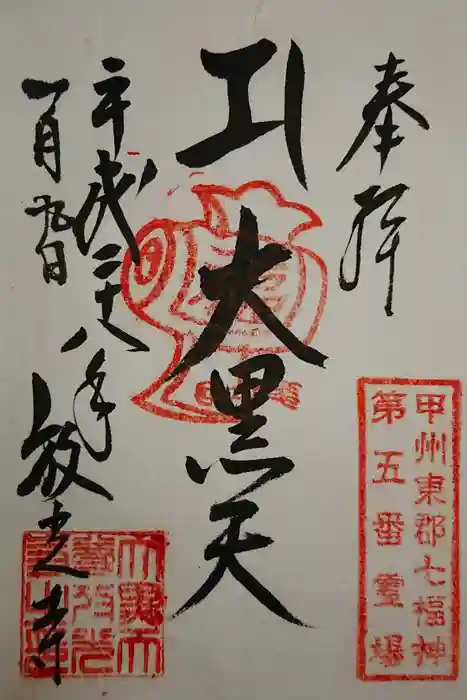 奉拝
甲州東郡七福神
第五番霊場
大黒天
平成二十八年
一月九日
放光寺